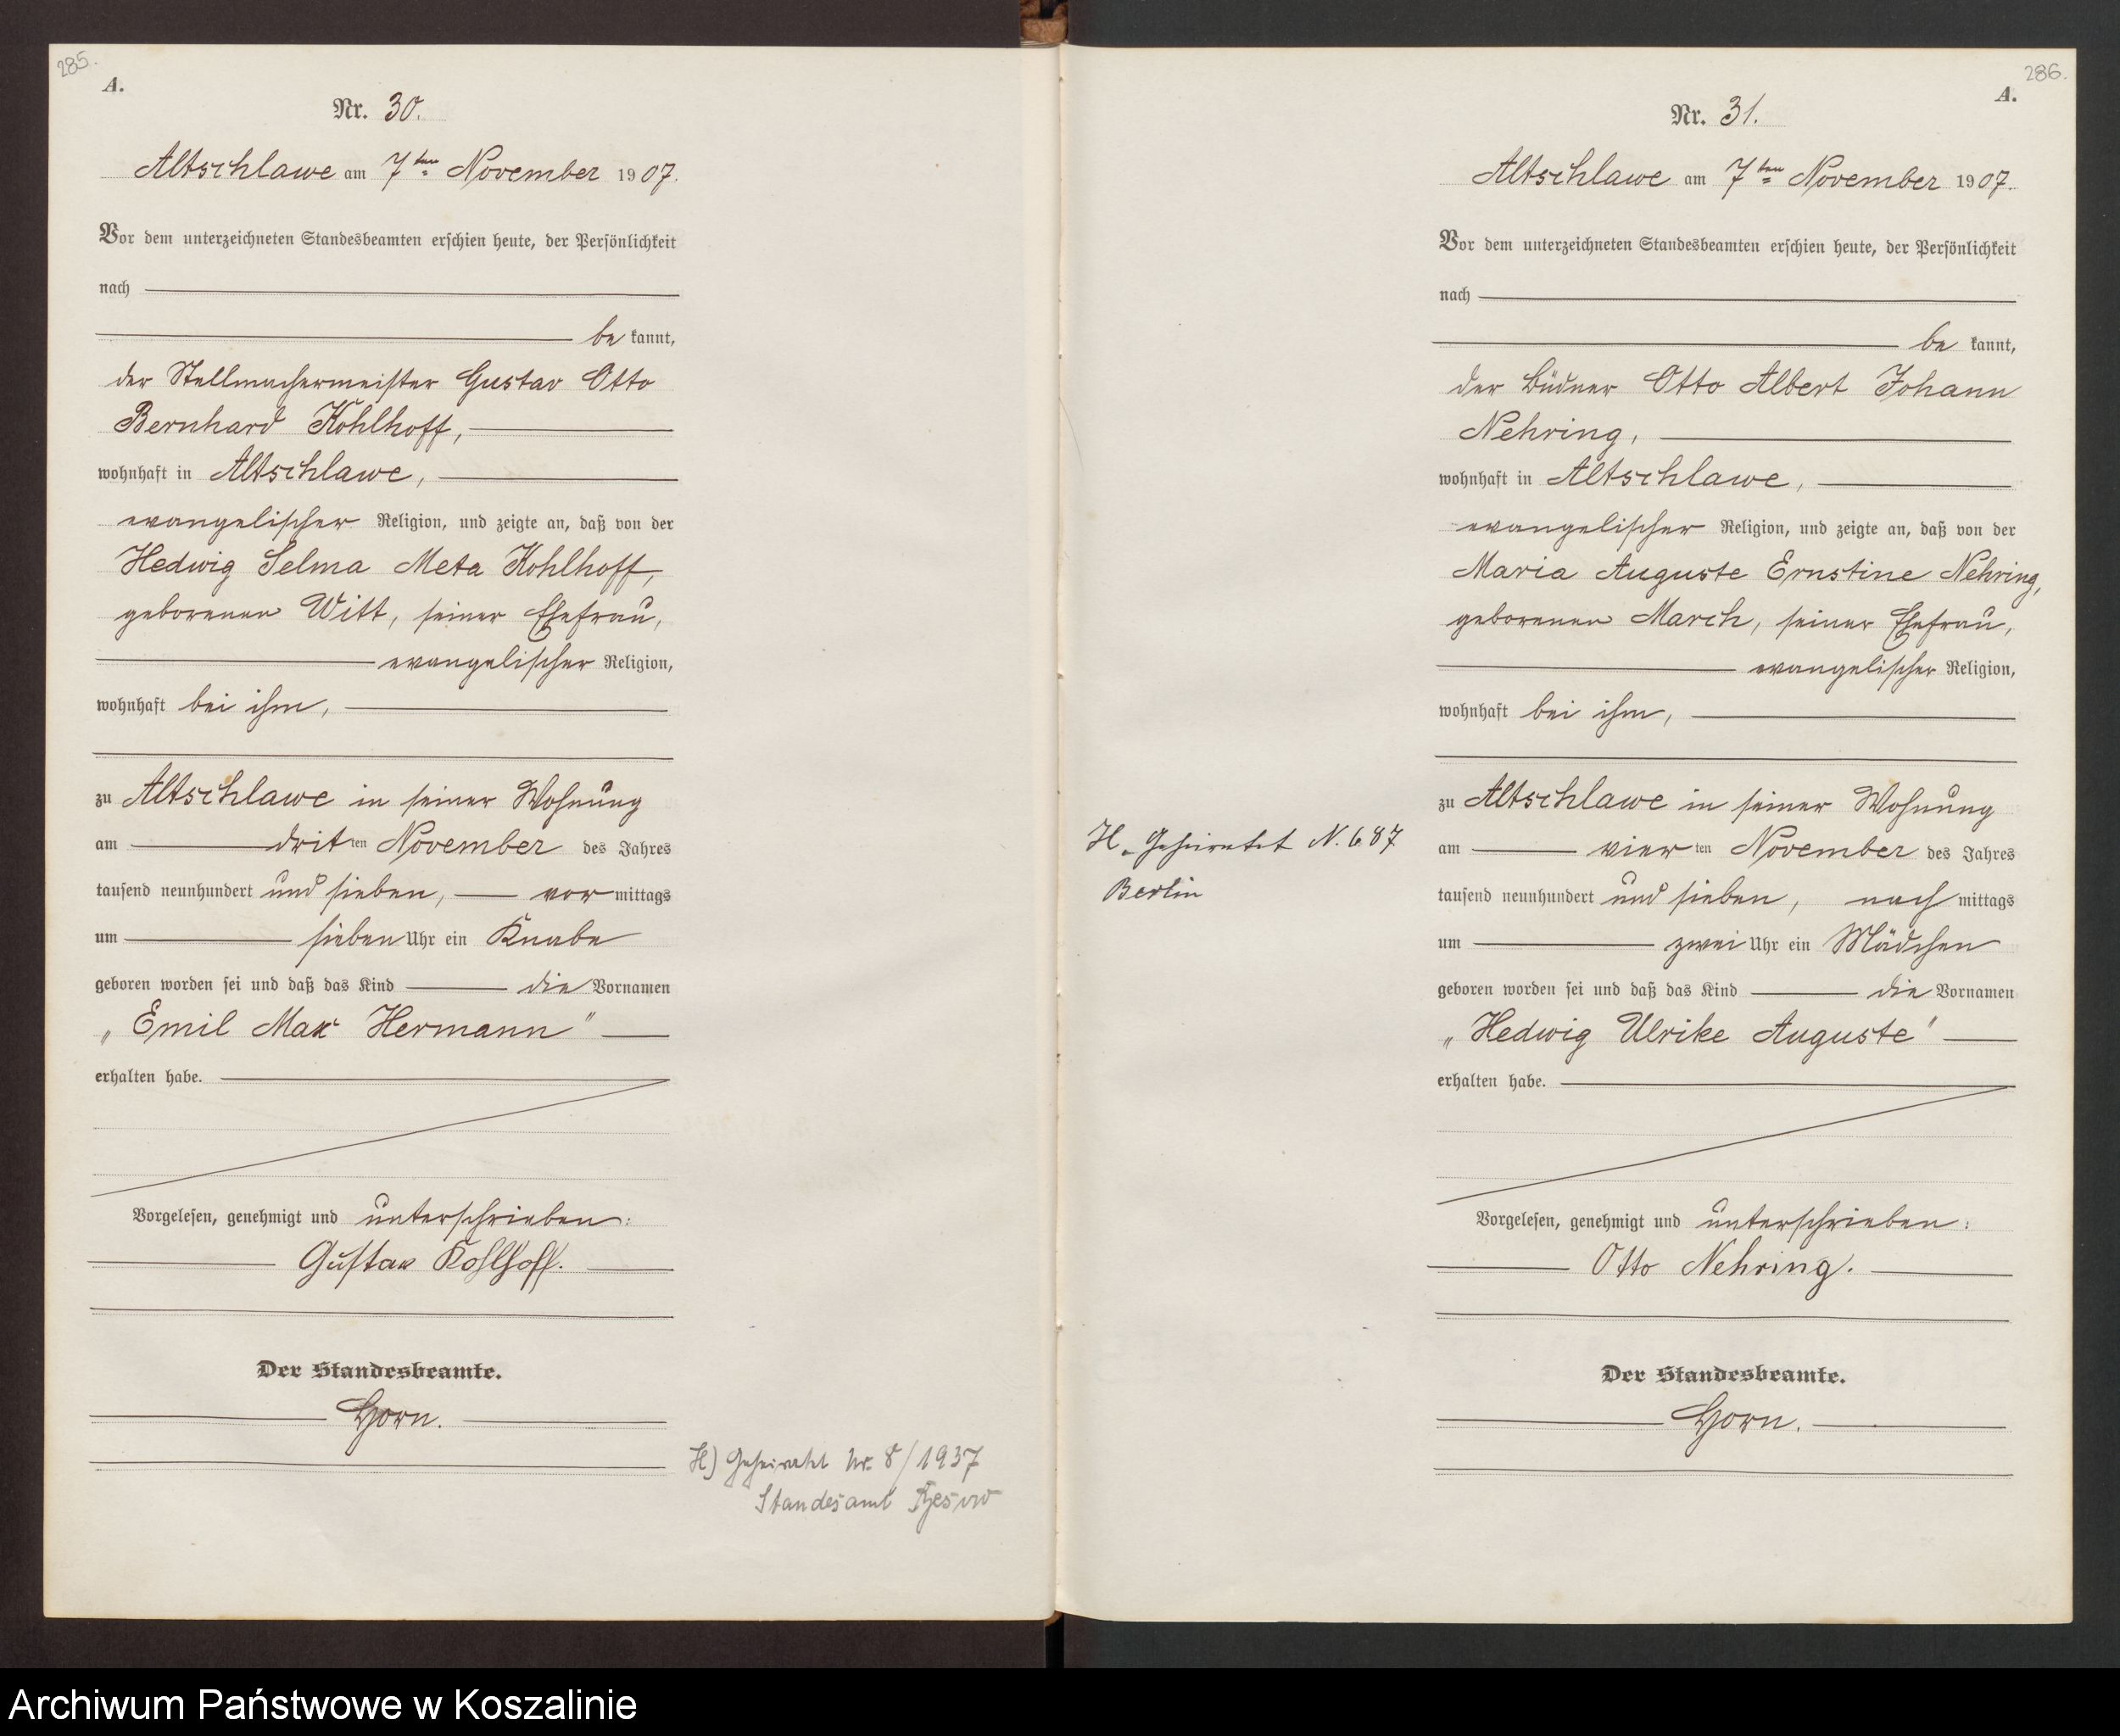 285.
A.
Nr. 30.
Altschlawe am 7ten November 1907.
Vor dem unterzeichneten Standesbeamten erschien heute, der Persönlichkeit
nach
bekannt,
der Stellmachermeister Gustav Otto
Bernhard Kohlhoff,
wohnhaft in Altschlawe,
evangelischer Religion, und zeigte an, daß von der
Hedwig Selma Meta Kohlhoff,
geborenen Witt, seiner Ehefrau,
evangelischer Religion,
wohnhaft bei ihm,
zu Altschlawe in seiner Wohnung
am dritten November des Jahres
tausend neunhundert und sieben, vormittags
um sieben Uhr ein Knabe
geboren worden sei und daß das Kind die Vornamen
„Emil Max Hermann"
erhalten habe.
Vorgelesen, genehmigt und unterschrieben:
Gustav Kohlhoff.
Der Standesbeamte.
Horn.
H) Geheiratet Nr. 8/1937
Standesamt
286.
A.
Nr. 31.
Altschlawe am 7ten November 1907.
Vor dem unterzeichneten Standesbeamten erschien heute, der Persönlichkeit
nach
bekannt,
der Büdner Otto Albert Johann
Nehring,
wohnhaft in Altschlawe,
evangelischer Religion, und zeigte an, daß von der
Maria Auguste Ernstine Nehring,
geborenen March, seiner Ehefrau,
evangelischer Religion,
wohnhaft bei ihm,
zu Altschlawe in seiner Wohnung
am vierten November des Jahres
tausend neunhundert und sieben, nachmittags
um zwei Uhr ein Mädchen
geboren worden sei und daß das Kind die Vornamen
„Hedwig Ulrike Auguste"
erhalten habe.
Vorgelesen, genehmigt und unterschrieben:
Otto Nehring.
Der Standesbeamte.
Horn.
H. Geheiratet N. 687
Berlin
Archiwum Państwowe w Koszalinie